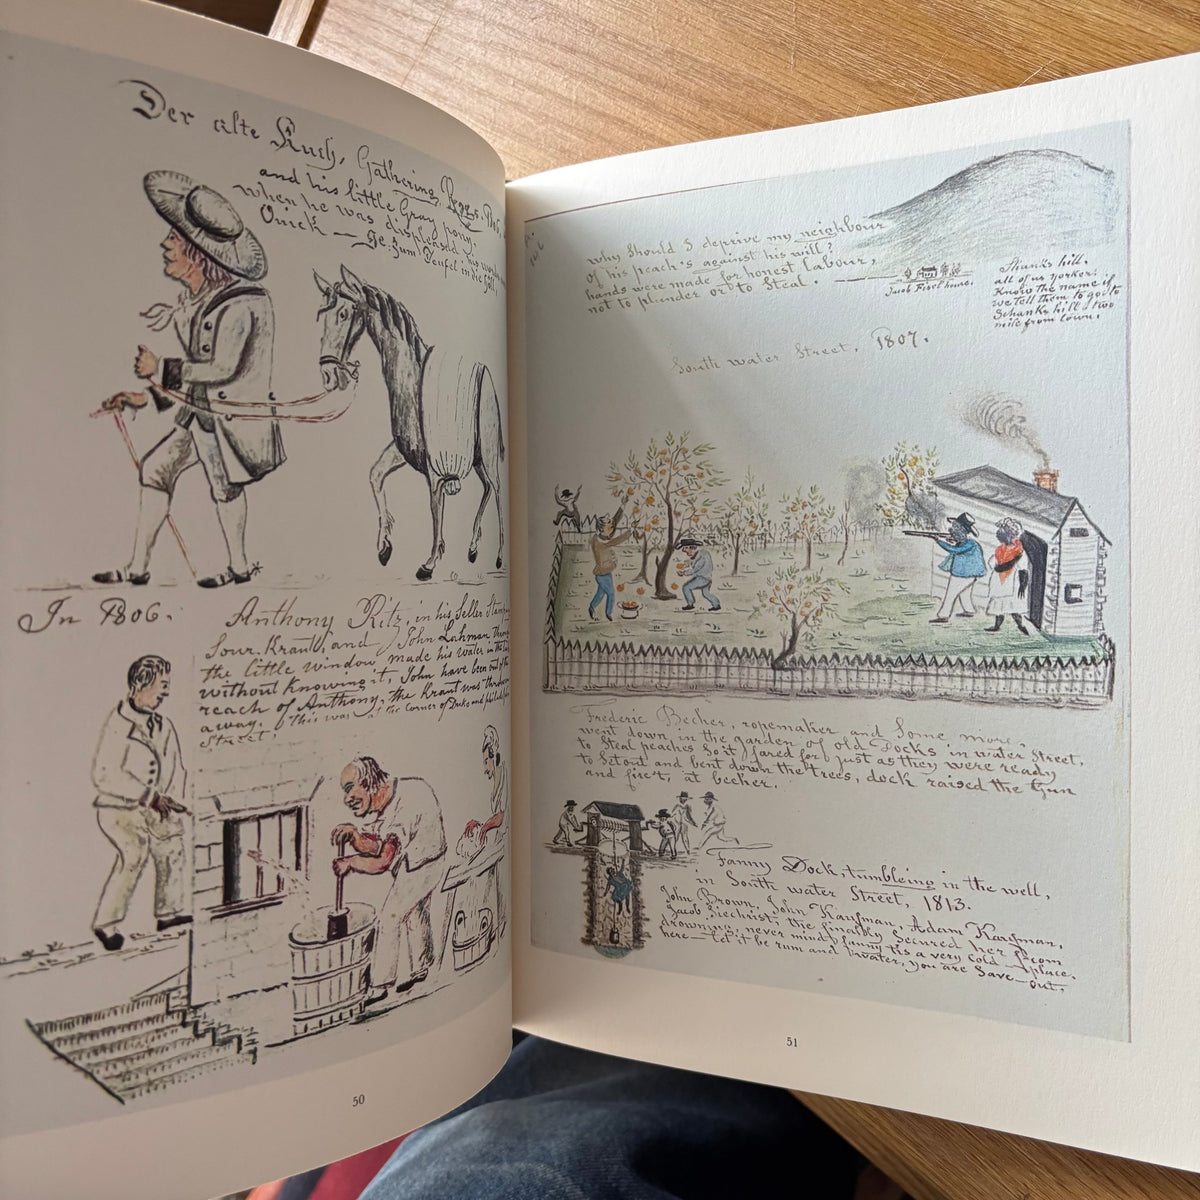 Der alte Kuch, Gathering Raggs. 1806.
and his little Gray pony.
when he was displeased, his
Quick — Ge. Zum Teufel in die Höll,
In 1806.
Anthony Ritz, in his Seller Stamp
Sour. Kraut, and John Lahman through
the little window, made his water in the
without knowing it, John have been out of the
reach of Anthony, the Kraut was thrown
away. This was at the corner of Duks and philad
Street.
50
why Should I deprive my neighbour
of his peach's against his will?
hands were made for honest labour,
not to plunder or to Steal.
Jacob house.
Shanks hill.
all of us yorker.
Know the name if
we tell them to go to
Schanks hill, two
mile from town.
South water Street, 1807.
Frederic Becher, ropemaker and Some more.
went down in the garden of old Docks in water Street,
to Steal peaches So it fared for b Just as they were ready
to Set out and bent down the trees, dock raised the Gun
and fire't, at becher.
Fanny Dock, tumbleing in the well,
in South water Street, 1813.
John Brown, John Kaufman, Adam Kaufman,
Jacob Siechrist, the finally Secured her from
drowning, never mind fanny tis a very Cold place.
here — let it be rum and water, you are Save — out.
51